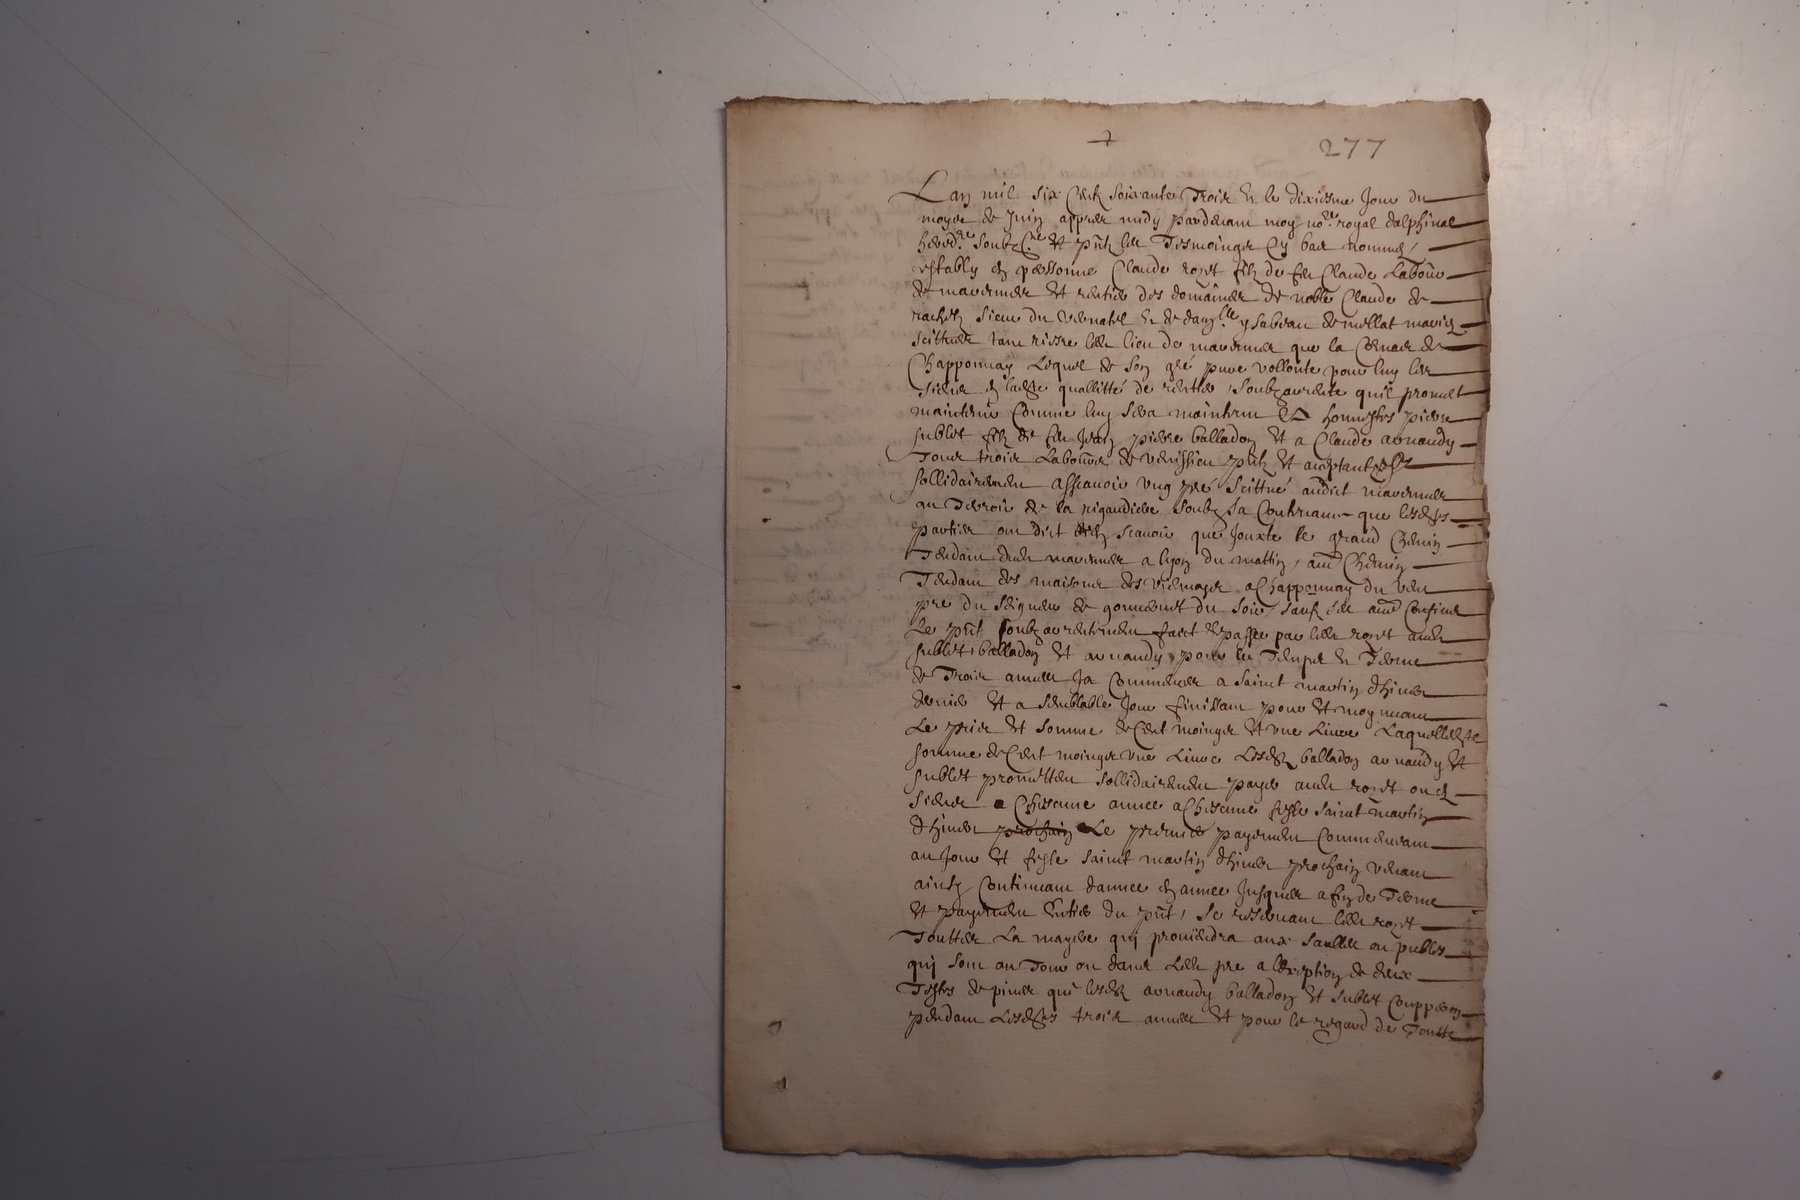 277
Lan mil six Centz soixante Trois & le dixiesme Jour du
moys de Juin appres midy pardevant moy no.re royal delphinal
hered.re soubz.ne et pñtz les Tesmoingz Cy bas nommes
estably en personne Claude rozet filz de feu Claude Labour
de marennes et rentier des domaines de noble Claude de
rachetz sieur du vernatel & de dam.lle ysabeau de mellat maries
scittues tant riesre led lieu de marennes que la Comar de
Chapponnay Lequel de son gré pure vollonte pour luy les
siens en ladte quallitté de rentier soubzarente quil promet
maintenir Comme luy sera maintenu A honnestes pierre
sublet filz de feu Jean pierre balladon et a Claude arnaudy
Tous trois Labours de venissieu pñtz et acceptantz
sollidairement assavoir ung pré scittué audict marennes
au Terroir de la rigaudiere soubz sa Contenance que lesdes
parties ont dict scavoir que Jouxte le grand Chemin
Tendant dud marennes a lyon du mattin, aud Chemin
Tendant des maisons des viernages a Chapponnay du vent
pre du seigneur de gouvernet du soir, sauf ses aus Confins
Le pñt soubzarentement faict & passe par led rozet ausd
sublet, balladon et arnaudy pour le Temps & Terme
de Trois annees Ja Commences a saint martin dhiver
dernier et a semblable Jour finissant pour et moyenant
Le prix et somme de Cent moingz et une Livre Laquelle dte
somme de Cent moingz une Livre Lesdz balladon arnaudy et
sublet promettent sollidairement payer aud rozet ou es
siens a Chescune annee a Chescune feste saint martin
dhiver prochain Le premier payement Commencant
au Jour et feste saint martin dhiver prochain venant
ainsy Continuant dannee en annee Jusques a fin de Terme
et payement Entier du pñt, se reservant led rozet
Touttes La mayere qui proviendra aux saulles ou publes
qui sont au Tour ou dans Led pre a lexeption de deux
Testes de pines qui lesdz arnaudy balladon et sublet Coupperon
pendant Lesdes trois annees et pour le regard de Toutte